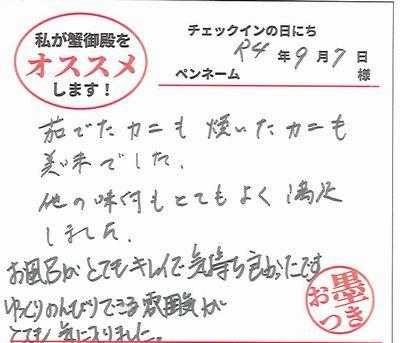 私が蟹御殿を
オススメ
します！
チェックインの日にち
R4年9月7日
ペンネーム 様
茹でたカニも焼いたカニも
美味でした。
他の味付もとてもよく満足
しました。
お風呂がとてもキレイで気持ち良かったです
ゆっくりのんびりできる雰囲気が
とても気に入りました。
お墨
つき